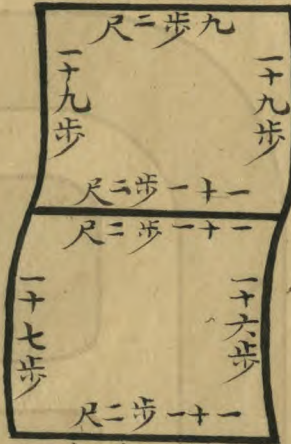 九步二尺
一十九步
一十九步
一十一步二尺
一十一步二尺
一十六步
一十七步
一十一步二尺